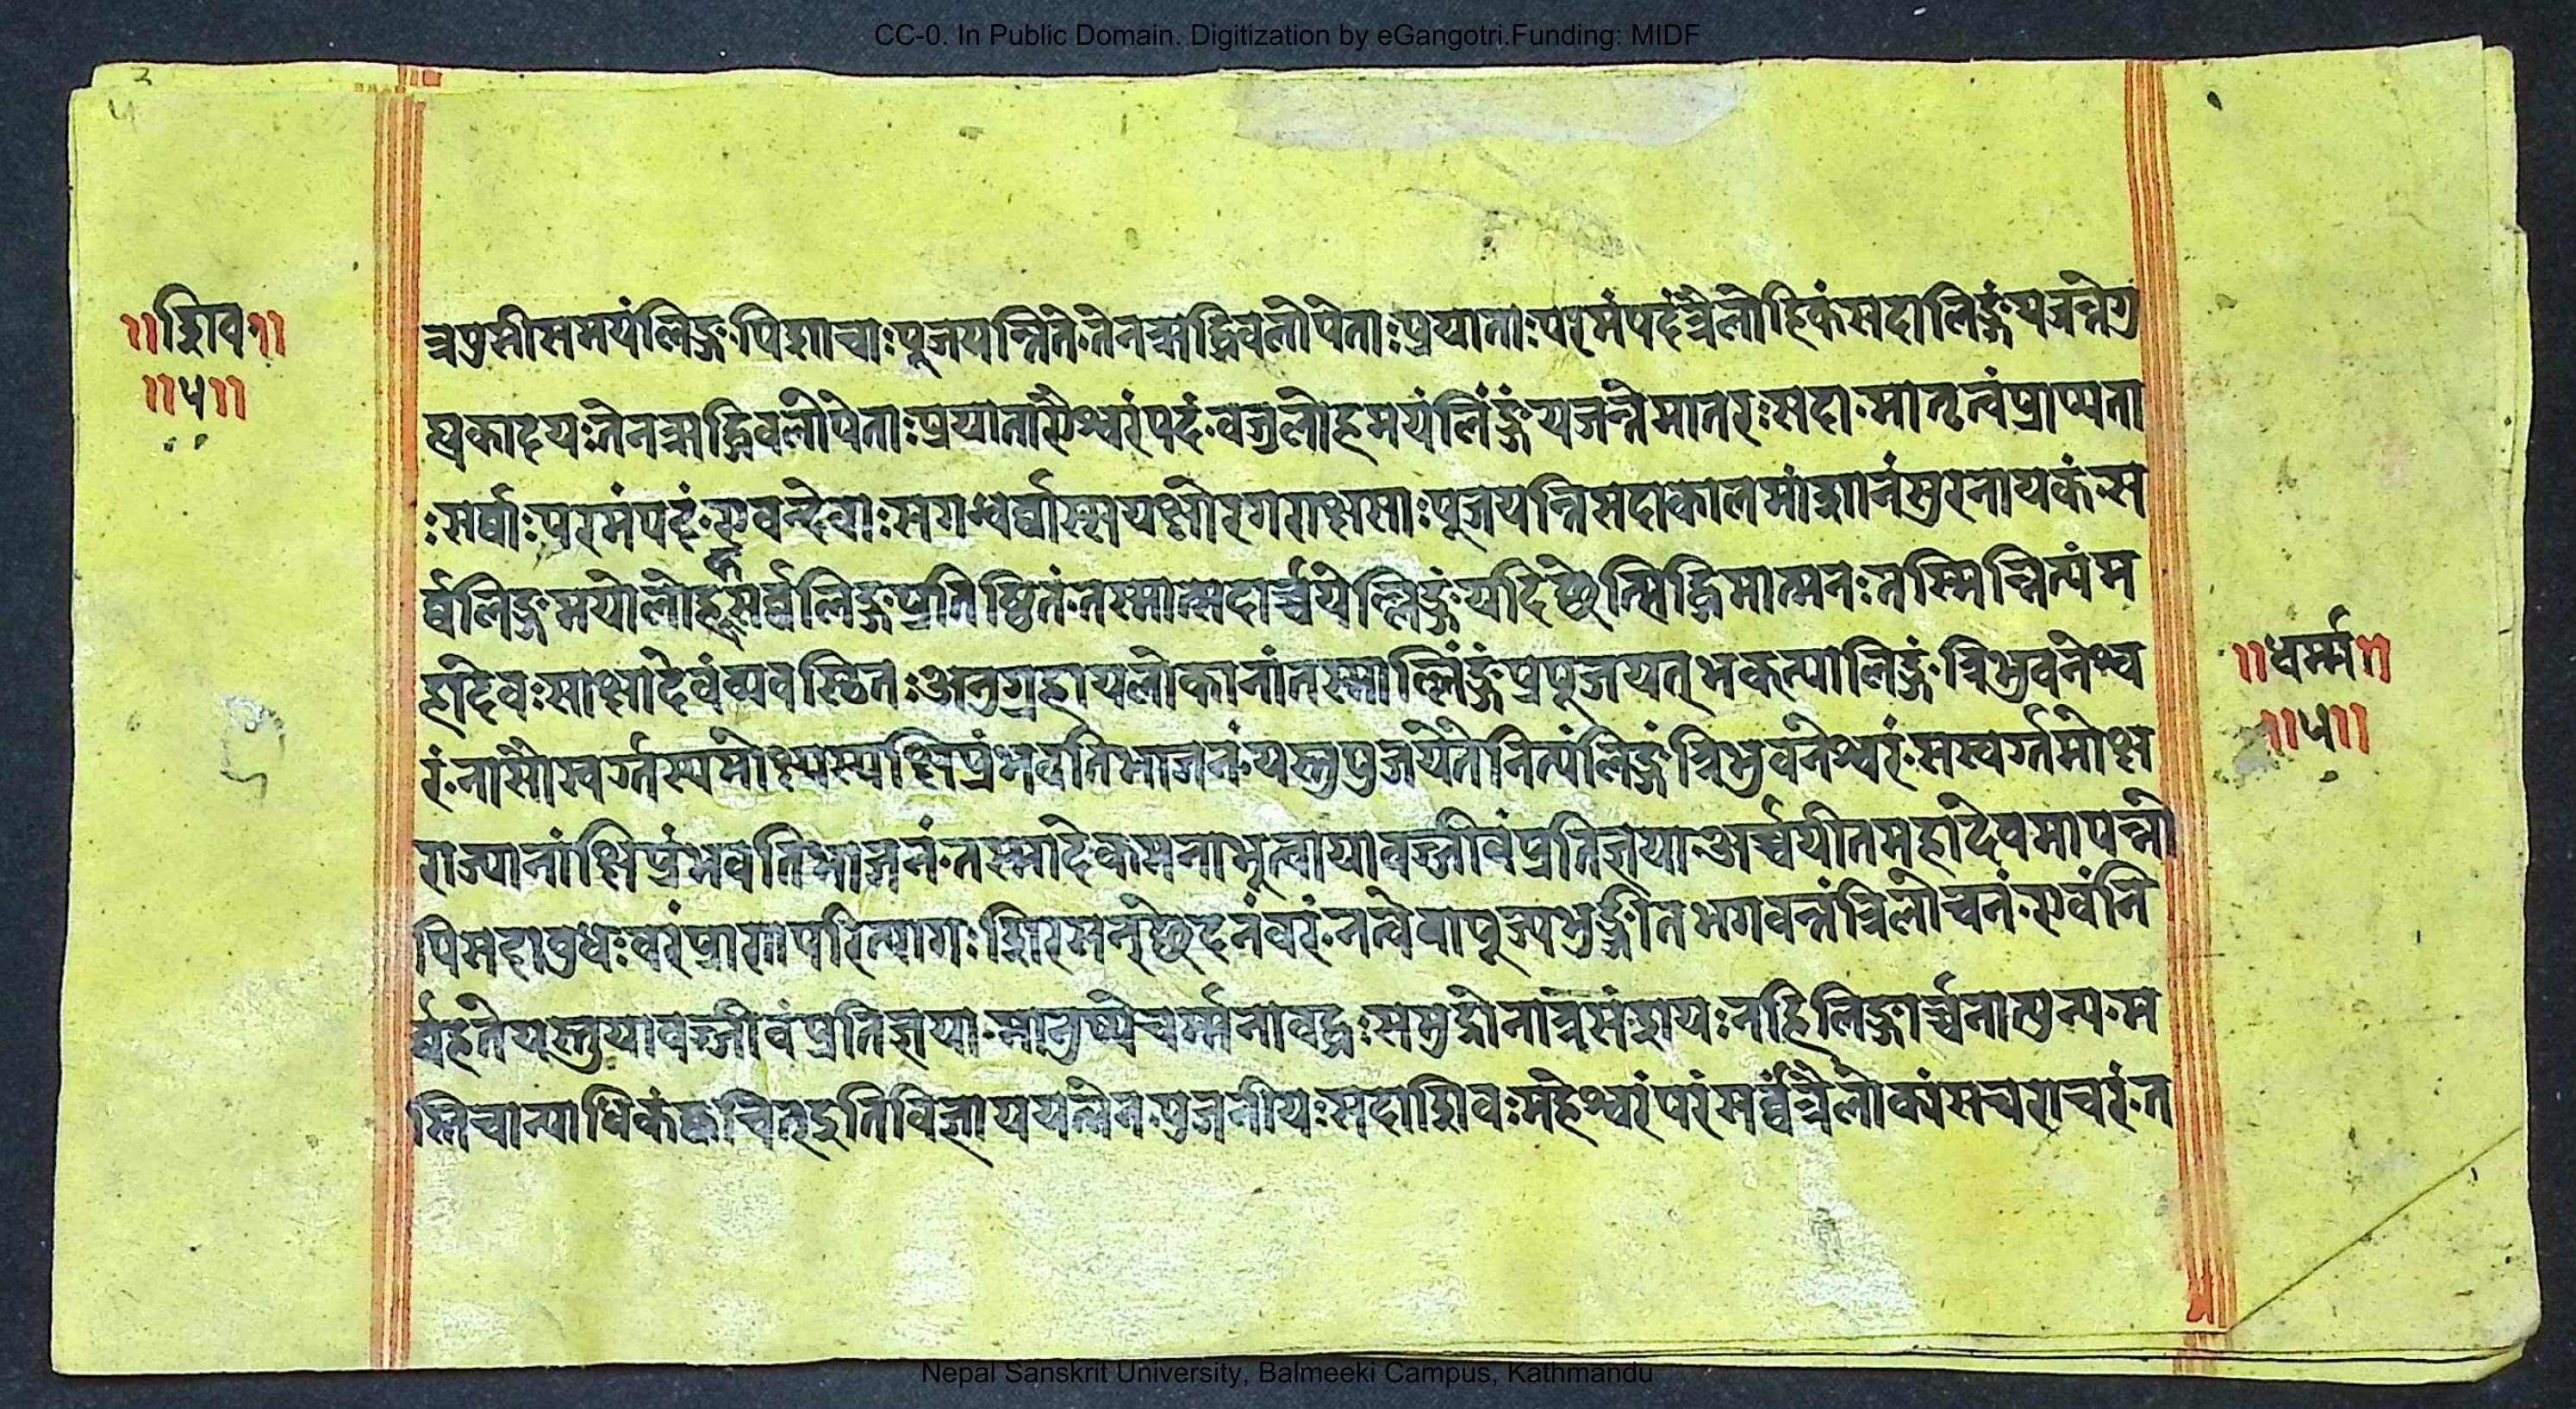 CC-0. In Public Domain. Digitization by eGangotri.Funding: MIDF
३
५
॥शिव॥
॥५॥
त्रपुसीसमयंलिङ्गपिशाचाःपूजयन्तिते॰तेनऋद्धिबलोपेताःप्रयाताःपरमंपदंत्रैलोहिकंसदालिङ्गंयजन्तेगु
ह्यकादयःतेनऋद्धिबलोपेताःप्रयाताऐश्वरंपदं॰वज्रलोहमयंलिंङ्गंयजन्तेमातरःसदा॰मातृत्वंप्राप्यता
ःसर्वाःपरमंपदं॰एवन्देवाःसगन्धर्वास्सयक्षोरगराक्षसाःपूजयन्तिसदाकालमीशानंसुरनायकं॰स
र्व्वलिङ्गमयोलोकसर्व्वलिङ्गप्रतिष्ठितं॰तस्मात्सदार्च्चयेल्लिङ्गंयदिछेत्सिद्धिमात्मनःतस्मिन्नित्यंम
हादेवःसाक्षादेवंव्यवस्थितःअनुग्रहायलोकानांतस्माल्लिंङ्गंप्रपूजयत्भक्त्यालिङ्गंत्रिभुवनेश्व
रं॰नासौस्वर्ग्गस्यमोक्ष्यस्यक्षिप्रंभवतिभाजनं॰यस्तुपुजयेतेनित्यंलिङ्गंत्रिभुवनेश्वरं॰सस्वर्ग्गमोक्ष
॥धर्म्म॥
॥५॥
राज्यानांक्षिप्रंभवतिभाजनं॰तस्मादेकमनाभूत्वायावज्जीवंप्रतिज्ञयाअर्च्चयीतमहादेवमापन्नो
पिमहाबुधःवरंप्राणपरित्यागःशिरसन्छेदनंवरं॰नत्वेवापूज्यभुञ्जीतभगवन्तंत्रिलोचनं॰एवंनि
र्व्वहतेयस्तुयावज्जीवंप्रतिज्ञया॰मानुष्येचर्म्मनाबद्धःसमुद्रोनात्रसंशयःनहिलिङ्गार्च्चनात्पुन्य॰म
स्तिचान्याधिकंक्वचित्इतिविज्ञाययत्नेनपुजनीयःसदाशिवःमहेश्वरंपरंसर्व्वंत्रैलोक्यंसचराचरं॰त
Nepal Sanskrit University, Balmeeki Campus, Kathmandu